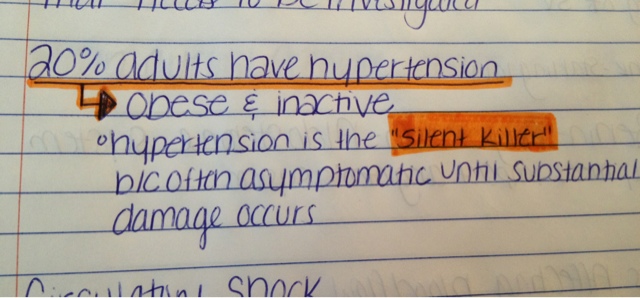 needs to be investigated
20% adults have hypertension
Obese & inactive
hypertension is the "Silent Killer"
b/c often asymptomatic until substantial
damage occurs
Circulating Shock